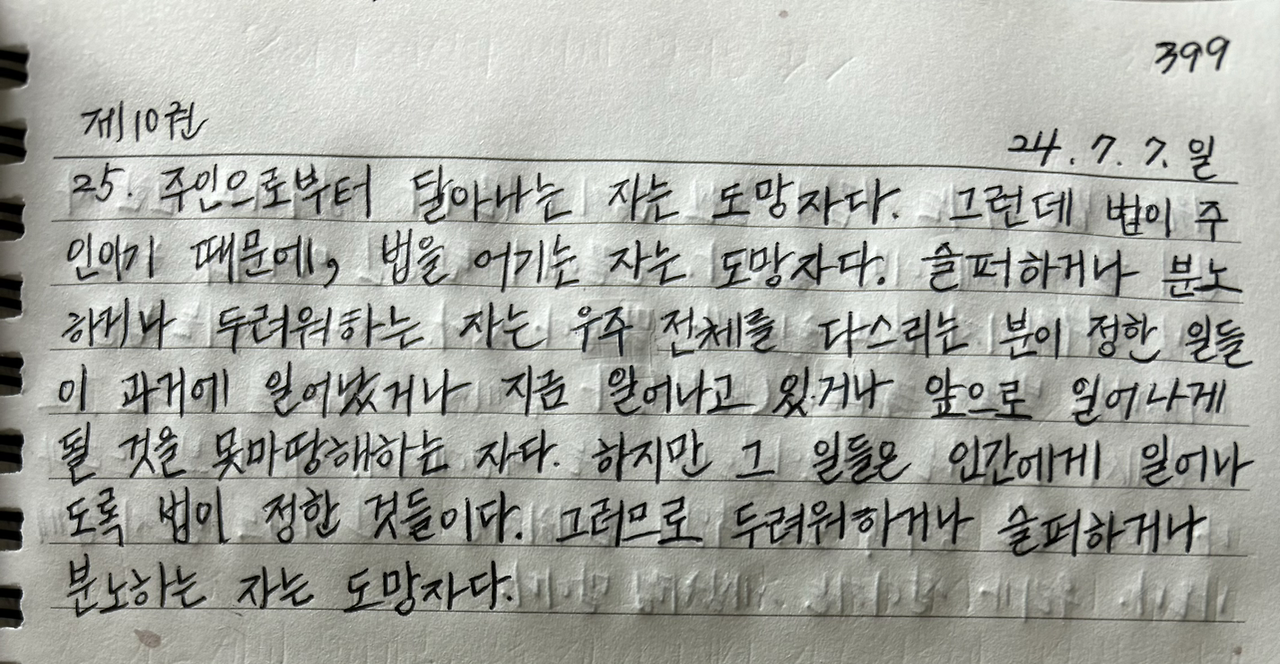 399
제10권
24. 7. 7. 일
25. 주인으로부터 달아나는 자는 도망자다. 그런데 법이 주
인이기 때문에, 법을 어기는 자는 도망자다. 슬퍼하거나 분노
하거나 두려워하는 자는 우주 전체를 다스리는 분이 정한 일들
이 과거에 일어났거나 지금 일어나고 있거나 앞으로 일어나게
될 것을 못마땅해하는 자다. 하지만 그 일들은 인간에게 일어나
도록 법이 정한 것들이다. 그러므로 두려워하거나 슬퍼하거나
분노하는 자는 도망자다.